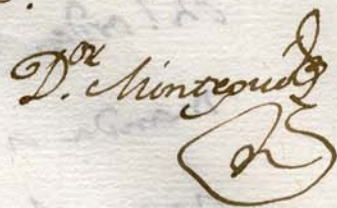 D.ᵒʳ Mintegui